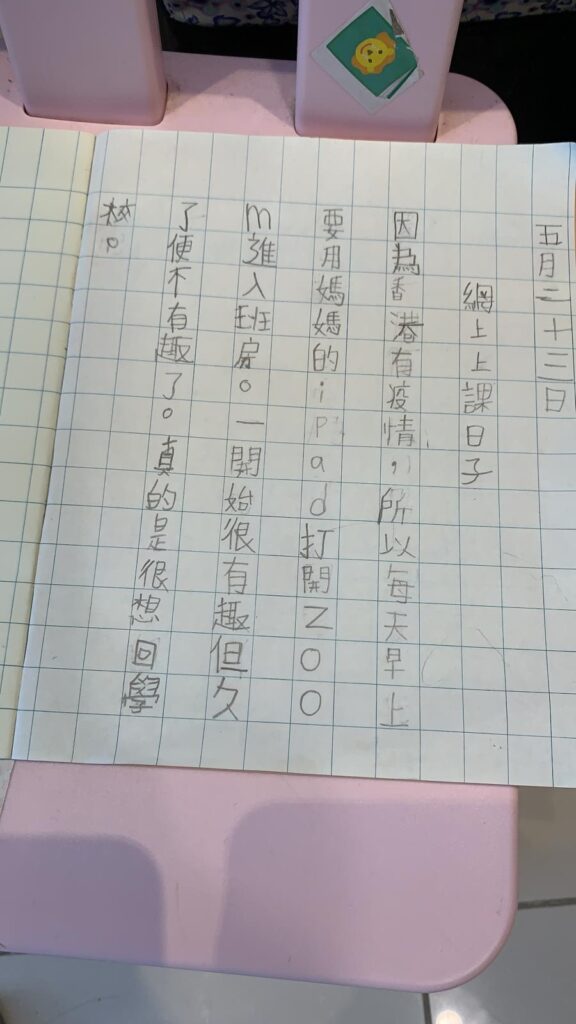 五月二十三日
網上上課日子
因為香港有疫情，所以每天早上
要用媽媽的ipad打開Zoo
m進入班房。一開始很有趣但久
了便不有趣了。真的是很想回學
校。